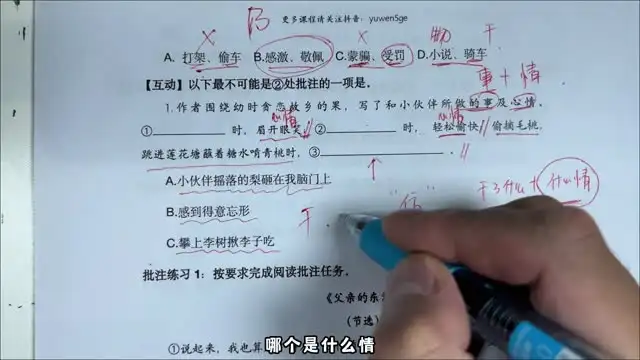 B 更多课程请关注抖音：yuwen5ge
A. 打架、偷车 B.感激、敬佩 C.蒙骗、受罚 D.小说、骑车
事+情
【互动】以下最不可能是②处批注的一项是。
1.作者围绕幼时贪恋故乡的果，写了和小伙伴所做的事及心情。
心情
①________时，眉开眼笑；②________时，轻松愉快；偷摘毛桃，
跳进莲花塘蘸着糖水啃青桃时，③________。
A.小伙伴摇落的梨砸在我脑门上
干了什么+什么情
B.感到得意忘形
干
C.攀上李树揪李子吃
批注练习1：按要求完成阅读批注任务。
《父亲的东
（节选）
哪个是什么情
①说起来，我也算